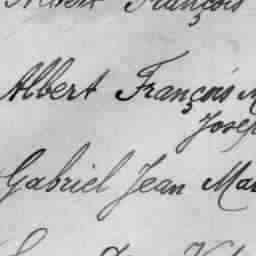 Albert François
Albert François
Josep
Gabriel Jean Mar